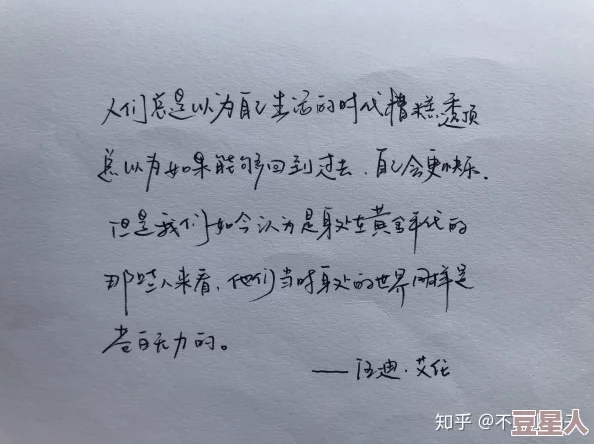 人们总是以为自己生活的时代糟糕透顶
总以为如果能够回到过去、自己会更快乐.
但是我们如今认为是身处在黄金年代的
那些人来看,他们当时身处的世界同样是
苍白无力的。
——伍迪·艾伦
知乎 @不
豆星人